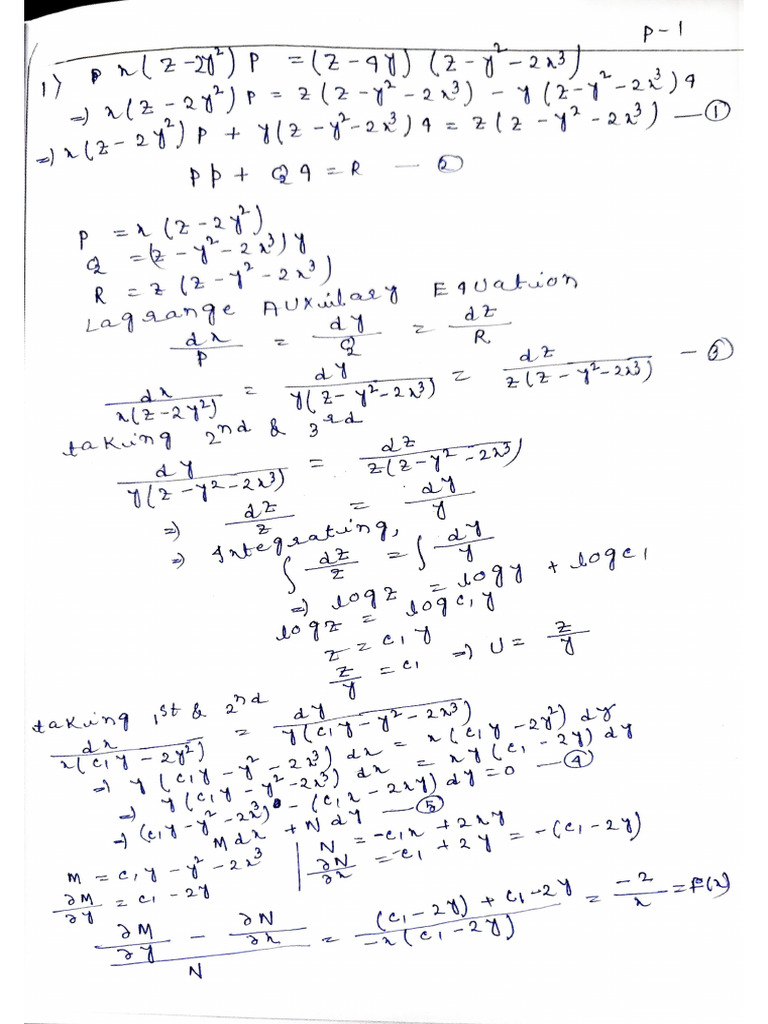 P-1
1) x(z-2y²) p = (z-qy) (z-y²-2x³)
=) x(z-2y²)p = z(z-y²-2x³) - y(z-y²-2x³)q
=) x(z-2y²)p + y(z-y²-2x³)q = z(z-y²-2x³) — ①
Pp + Qq = R — ②
P = x(z-2y²)
Q = (z-y²-2x³)y
R = z(z-y²-2x³)
Lagrange Auxilary Equation
dx/P = dy/Q = dz/R
dx/x(z-2y²) = dy/y(z-y²-2x³) = dz/z(z-y²-2x³) — ③
taking 2nd & 3rd
dy/y(z-y²-2x³) = dz/z(z-y²-2x³)
=) dz/z = dy/y
=) Integrating,
∫dz/z = ∫dy/y
=) logz = logy + logc₁
logz = logc₁y
z = c₁y
z/y = c₁ =) U = z/y
taking 1st & 2nd
dx/x(c₁y-2y²) = dy/y(c₁y-y²-2x³)
=) y(c₁y-y²-2x³) dx = x(c₁y-2y²) dy
=) y(c₁y-y²-2x³) dx = xy(c₁-2y) dy
=) (c₁y-y²-2x³) - (c₁x-2xy) dy=0 — ④
Mdx + Ndy — ⑤
M = c₁y-y²-2x³ | N = -c₁x+2xy
∂M/∂y = c₁-2y | ∂N/∂x = -c₁+2y = -(c₁-2y)
(∂M/∂y - ∂N/∂x)/N = ((c₁-2y)+c₁-2y)/(-x(c₁-2y)) = -2/x = F(x)